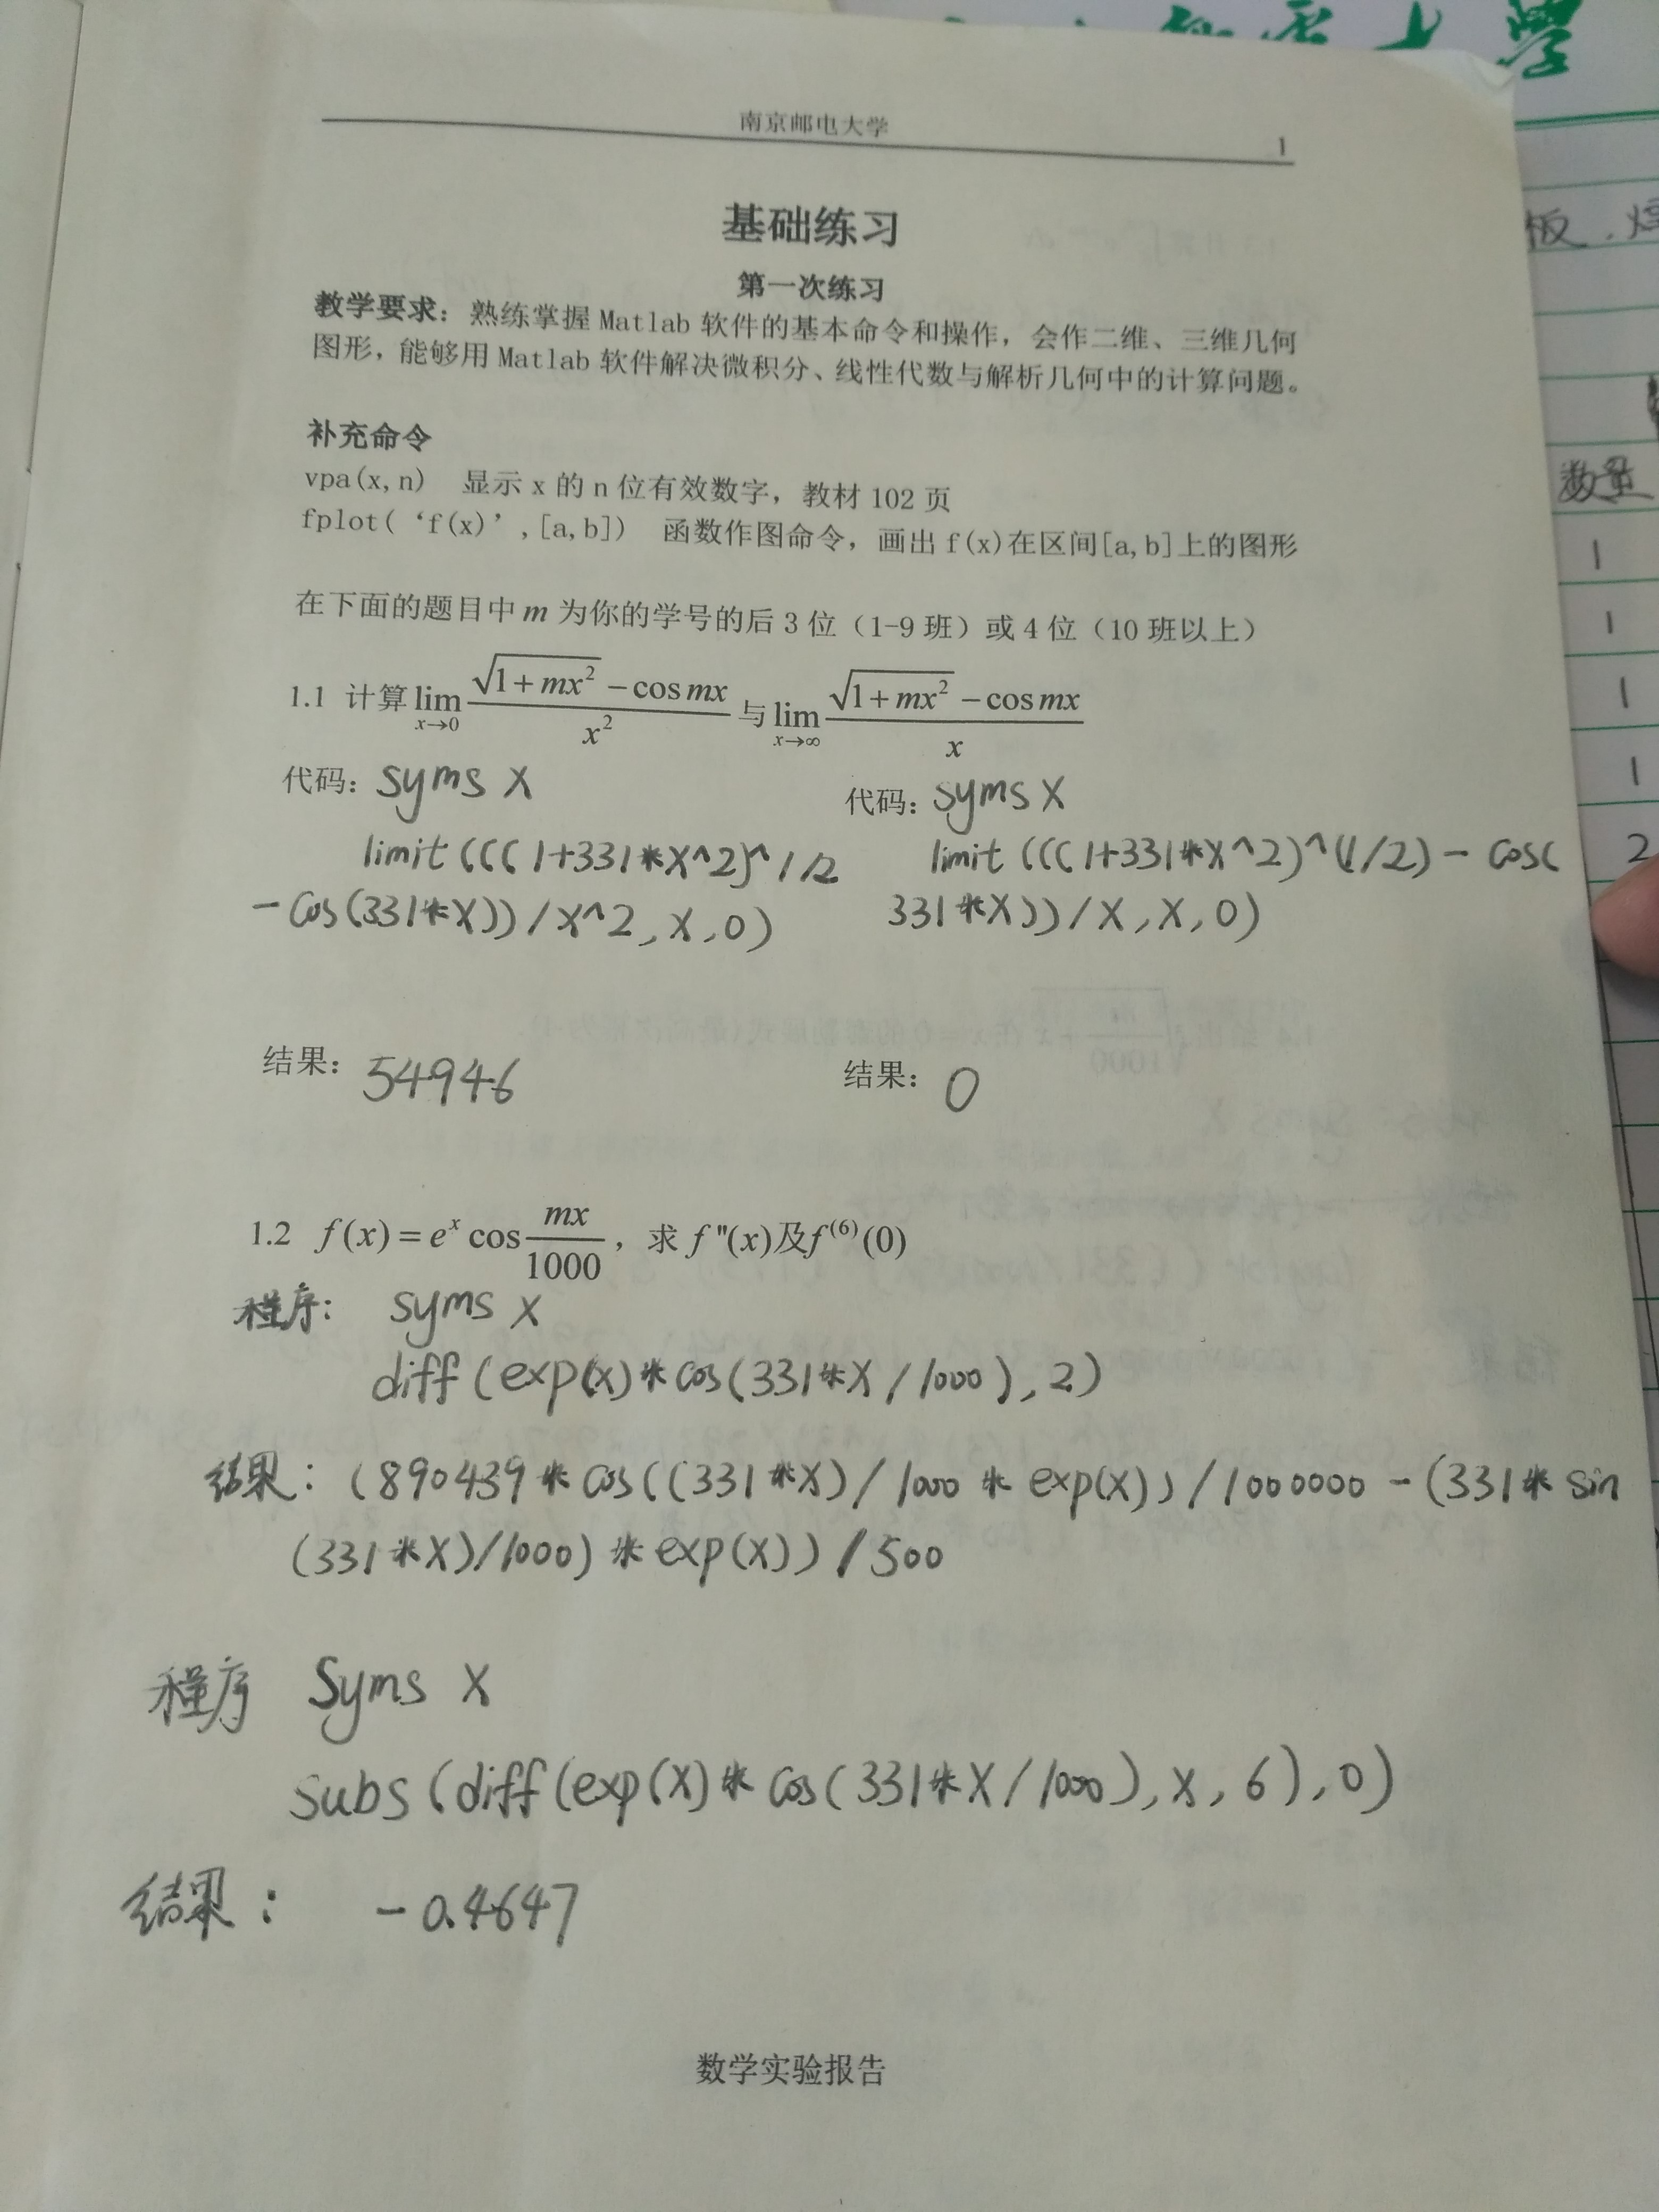 大學
南京邮电大学
1
基础练习
第一次练习
教学要求：熟练掌握 Matlab 软件的基本命令和操作，会作二维、三维几何
图形，能够用 Matlab 软件解决微积分、线性代数与解析几何中的计算问题。
补充命令
vpa(x,n) 显示 x 的 n 位有效数字，教材 102 页
fplot(‘f(x)’,[a,b]) 函数作图命令，画出 f(x)在区间[a,b]上的图形
在下面的题目中 m 为你的学号的后 3 位（1-9 班）或 4 位（10 班以上）
1.1 计算 lim x→0 (√(1+mx²) - cos mx)/x² 与 lim x→∞ (√(1+mx²) - cos mx)/x
代码： syms x
limit (((1+331*x^2)^1/2
-cos(331*x))/x^2,x,0)
代码： syms x
limit (((1+331*x^2)^(1/2)-cos(
331*x))/x,x,0)
结果： 54946
结果： 0
1.2 f(x)=eˣcos mx/1000，求 f"(x)及f⁽⁶⁾(0)
程序： syms x
diff(exp(x)*cos(331*x/1000),2)
结果：(890439*cos((331*x)/1000*exp(x))/1000000-(331*sin
(331*x)/1000)*exp(x))/500
程序 Syms x
subs(diff(exp(x)*cos(331*x/1000),x,6),0)
结果： -0.4647
数学实验报告
板
数量
1
1
1
1
2